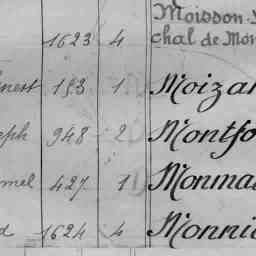 Moisson-
1623 4 chal de Mon
nest 153 1 Moiza
eph 948 2 Montfo
mel 427 1 Monma
d 1624 4 Monni